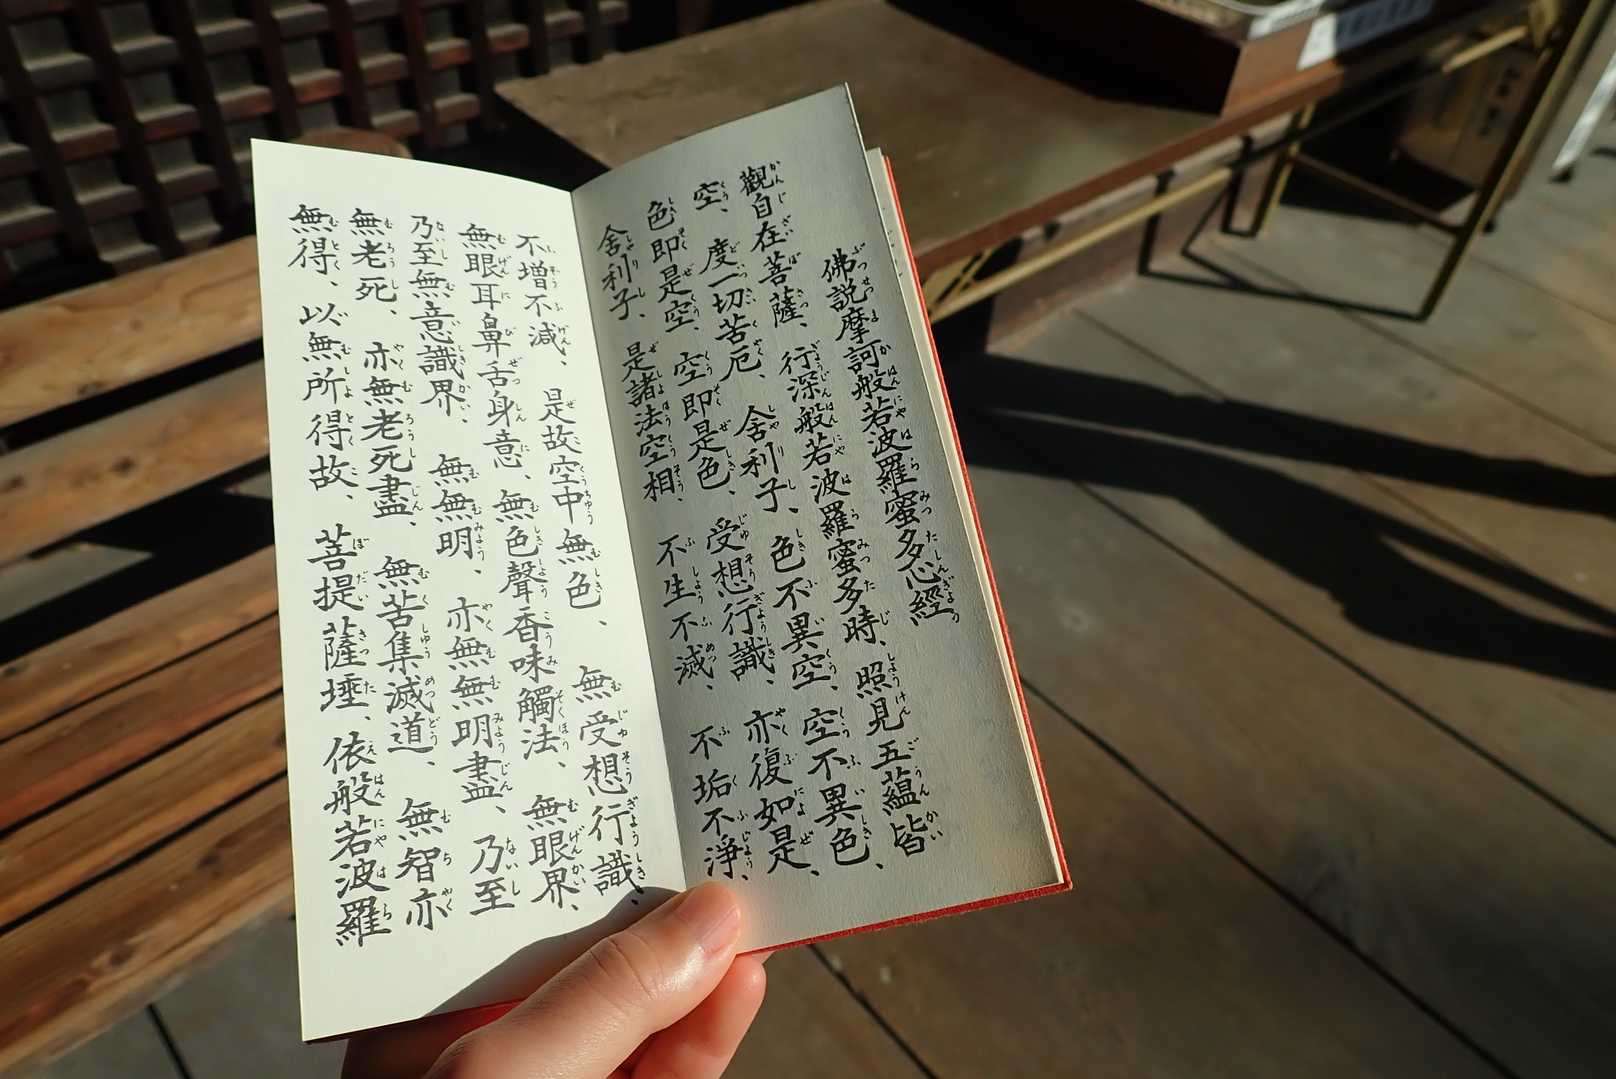 佛説摩訶般若波羅蜜多心經
觀自在菩薩、行深般若波羅蜜多時、照見五蘊皆
空、度一切苦厄、舍利子、色不異空、空不異色、
色即是空、空即是色、受想行識、亦復如是、
舍利子、是諸法空相、不生不滅、不垢不淨、
不增不減、是故空中無色、無受想行識、
無眼耳鼻舌身意、無色聲香味觸法、無眼界、
乃至無意識界、無無明、亦無無明盡、乃至
無老死、亦無老死盡、無苦集滅道、無智亦
無得、以無所得故、菩提薩埵、依般若波羅